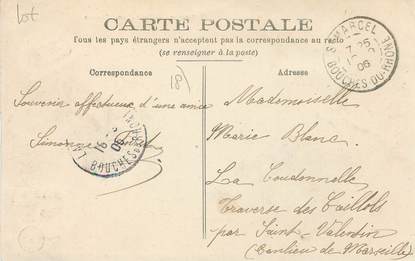 lot
CARTE POSTALE
Tous les pays étrangers n'acceptent pas la correspondance au recto
(se renseigner à la poste)
Correspondance
Adresse
18
Souvenir affectueux d'une amie
Simonne
Mademoiselle
Marie Blanc
La Coudonnelle
Traverse des Caillols
par Saint-Valentin
(Banlieu de Marseille)
ST MARCEL
7 25
06
BOUCHES-DU-RHONE
16
06
BOUCHES DU RHONE